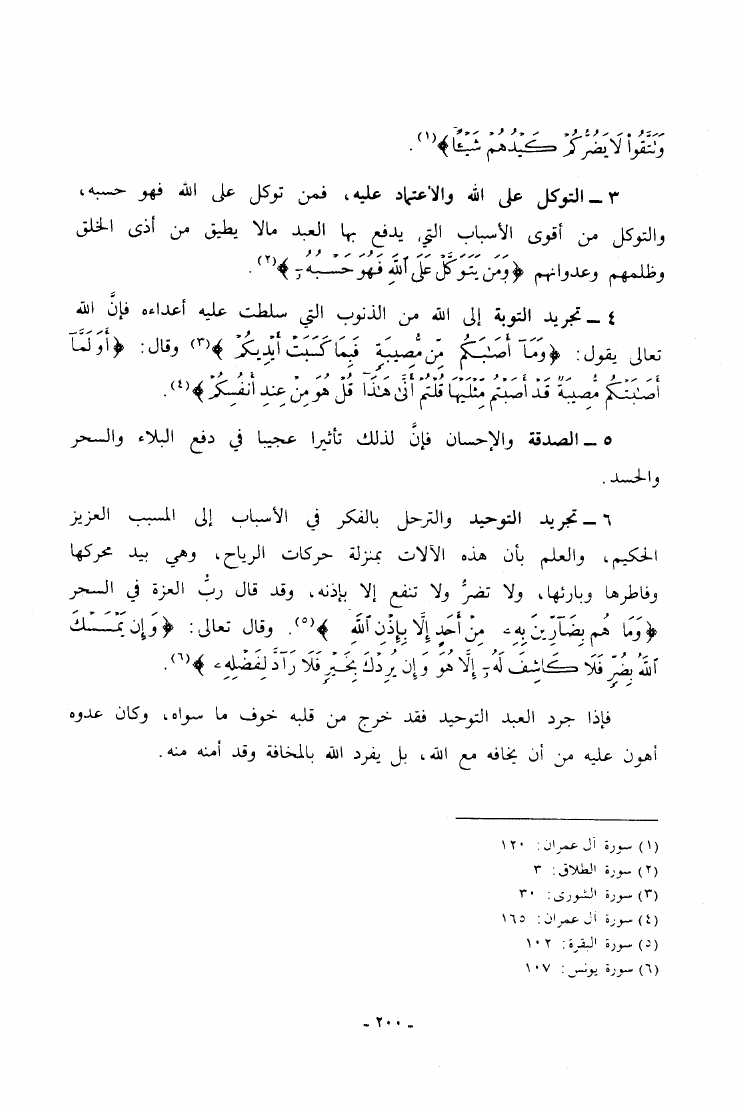 وَتَتَّقُوا۟ لَا يَضُرُّكُمْ كَيْدُهُمْ شَيْـًٔا﴾(١).
٣ – التوكل على الله والاعتماد عليه، فمن توكل على الله فهو حسبه،
والتوكل من أقوى الأسباب التي يدفع بها العبد مالا يطيق من أذى الخلق
وظلمهم وعدوانهم ﴿وَمَن يَتَوَكَّلْ عَلَى ٱللَّهِ فَهُوَ حَسْبُهُۥٓ﴾(٢).
٤ – تجريد التوبة إلى الله من الذنوب التي سلطت عليه أعداءه فإنَّ الله
تعالى يقول: ﴿وَمَآ أَصَٰبَكُم مِّن مُّصِيبَةٍ فَبِمَا كَسَبَتْ أَيْدِيكُمْ﴾(٣) وقال: ﴿أَوَلَمَّآ
أَصَٰبَتْكُم مُّصِيبَةٌ قَدْ أَصَبْتُم مِّثْلَيْهَا قُلْتُمْ أَنَّىٰ هَٰذَا قُلْ هُوَ مِنْ عِندِ أَنفُسِكُمْ﴾(٤).
٥ – الصدقة والإحسان فإنَّ لذلك تأثيرا عجيبا في دفع البلاء والسحر
والحسد.
٦ – تجريد التوحيد والترحل بالفكر في الأسباب إلى المسبب العزيز
الحكيم، والعلم بأن هذه الآلات بمنزلة حركات الرياح، وهي بيد محركها
وفاطرها وبارئها، ولا تضرُّ ولا تنفع إلا بإذنه، وقد قال ربُّ العزة في السحر
﴿وَمَا هُم بِضَآرِّينَ بِهِۦ مِنْ أَحَدٍ إِلَّا بِإِذْنِ ٱللَّهِ﴾(٥). وقال تعالى: ﴿وَإِن يَمْسَسْكَ
ٱللَّهُ بِضُرٍّ فَلَا كَاشِفَ لَهُۥٓ إِلَّا هُوَ وَإِن يُرِدْكَ بِخَيْرٍ فَلَا رَآدَّ لِفَضْلِهِۦ﴾(٦).
فإذا جرد العبد التوحيد فقد خرج من قلبه خوف ما سواه، وكان عدوه
أهون عليه من أن يخافه مع الله، بل يفرد الله بالمخافة وقد أمنه منه.
(١) سورة آل عمران: ١٢٠
(٢) سورة الطلاق: ٣
(٣) سورة الشورى: ٣٠
(٤) سورة آل عمران: ١٦٥
(٥) سورة البقرة: ١٠٢
(٦) سورة يونس: ١٠٧
- ٢٠٠ -